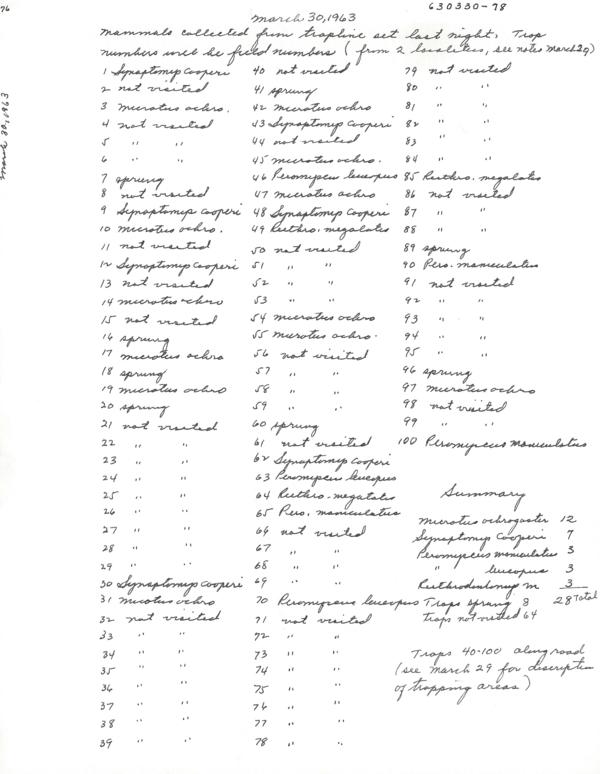 76
630330-78
March 30, 1963
March 30, 1963
Mammals collected from trapline set last night. Trap
numbers will be field numbers (from 2 localities, see notes March 29)
1 Synaptomys Cooperi
2 not visited
3 microtus ochro.
4 not visited
5 " "
6 " "
7 sprung
8 not visited
9 Synaptomys cooperi
10 microtus ochro.
11 not visited
12 Synaptomys cooperi
13 not visited
14 microtus ochro
15 not visited
16 sprung
17 microtus ochro
18 sprung
19 microtus ochro
20 sprung
21 not visited
22 " "
23 " "
24 " "
25 " "
26 " "
27 " "
28 " "
29 " "
30 Synaptomys cooperi
31 microtus ochro
32 not visited
33 " "
34 " "
35 " "
36 " "
37 " "
38 " "
39 " "
40 not visited
41 sprung
42 microtus ochro
43 Synaptomys cooperi
44 not visited
45 microtus ochro.
46 Peromyscus leucopus
47 microtus ochro
48 Synaptomys cooperi
49 Reithro. megalotes
50 not visited
51 " "
52 " "
53 " "
54 microtus ochro
55 microtus ochro.
56 not visited
57 " "
58 " "
59 " "
60 sprung
61 not visited
62 Synaptomys cooperi
63 Peromyscus leucopus
64 Reithro. megalotes
65 Pero. maniculatus
66 not visited
67 " "
68 " "
69 " "
70 Peromyscus leucopus
71 not visited
72 " "
73 " "
74 " "
75 " "
76 " "
77 " "
78 " "
79 not visited
80 " "
81 " "
82 " "
83 " "
84 " "
85 Reithro. megalotes
86 not visited
87 " "
88 " "
89 sprung
90 Pero. maniculatus
91 not visited
92 " "
93 " "
94 " "
95 " "
96 sprung
97 microtus ochro
98 not visited
99 " "
100 Peromyscus maniculatus
Summary
Microtus ochrogaster 12
Synaptomys Cooperi 7
Peromyscus maniculatus 3
" leucopus 3
Reithrodontomys m 3
28 Total
Traps sprung 8
traps not visited 64
Traps 40-100 along road
(see March 29 for description
of trapping areas)